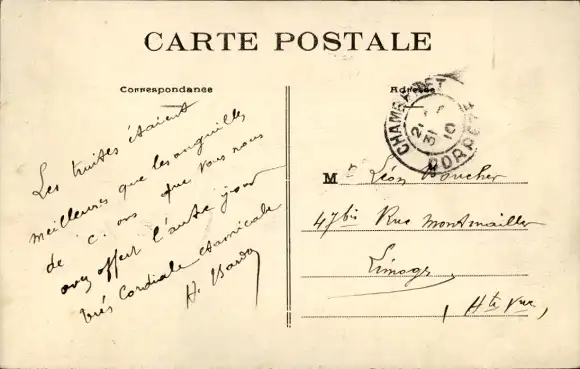 CARTE POSTALE
Correspondance
Adresse
Les truites étaient
meilleures que les anguilles
de c. ons que vous nous
avez offert l'autre jour
très cordiale et amicale
H.
CHAMB
21
31 10
CORRÈZE
Mr Léon Boucher
47 bis Rue Montmailler
Limoges
(Hte Vne)